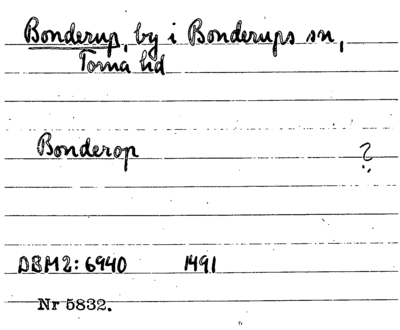 Bonderup, by i Bonderups sn,
Torna hd
Bonderop ?
DBM2:6940 1491
Nr 5832.